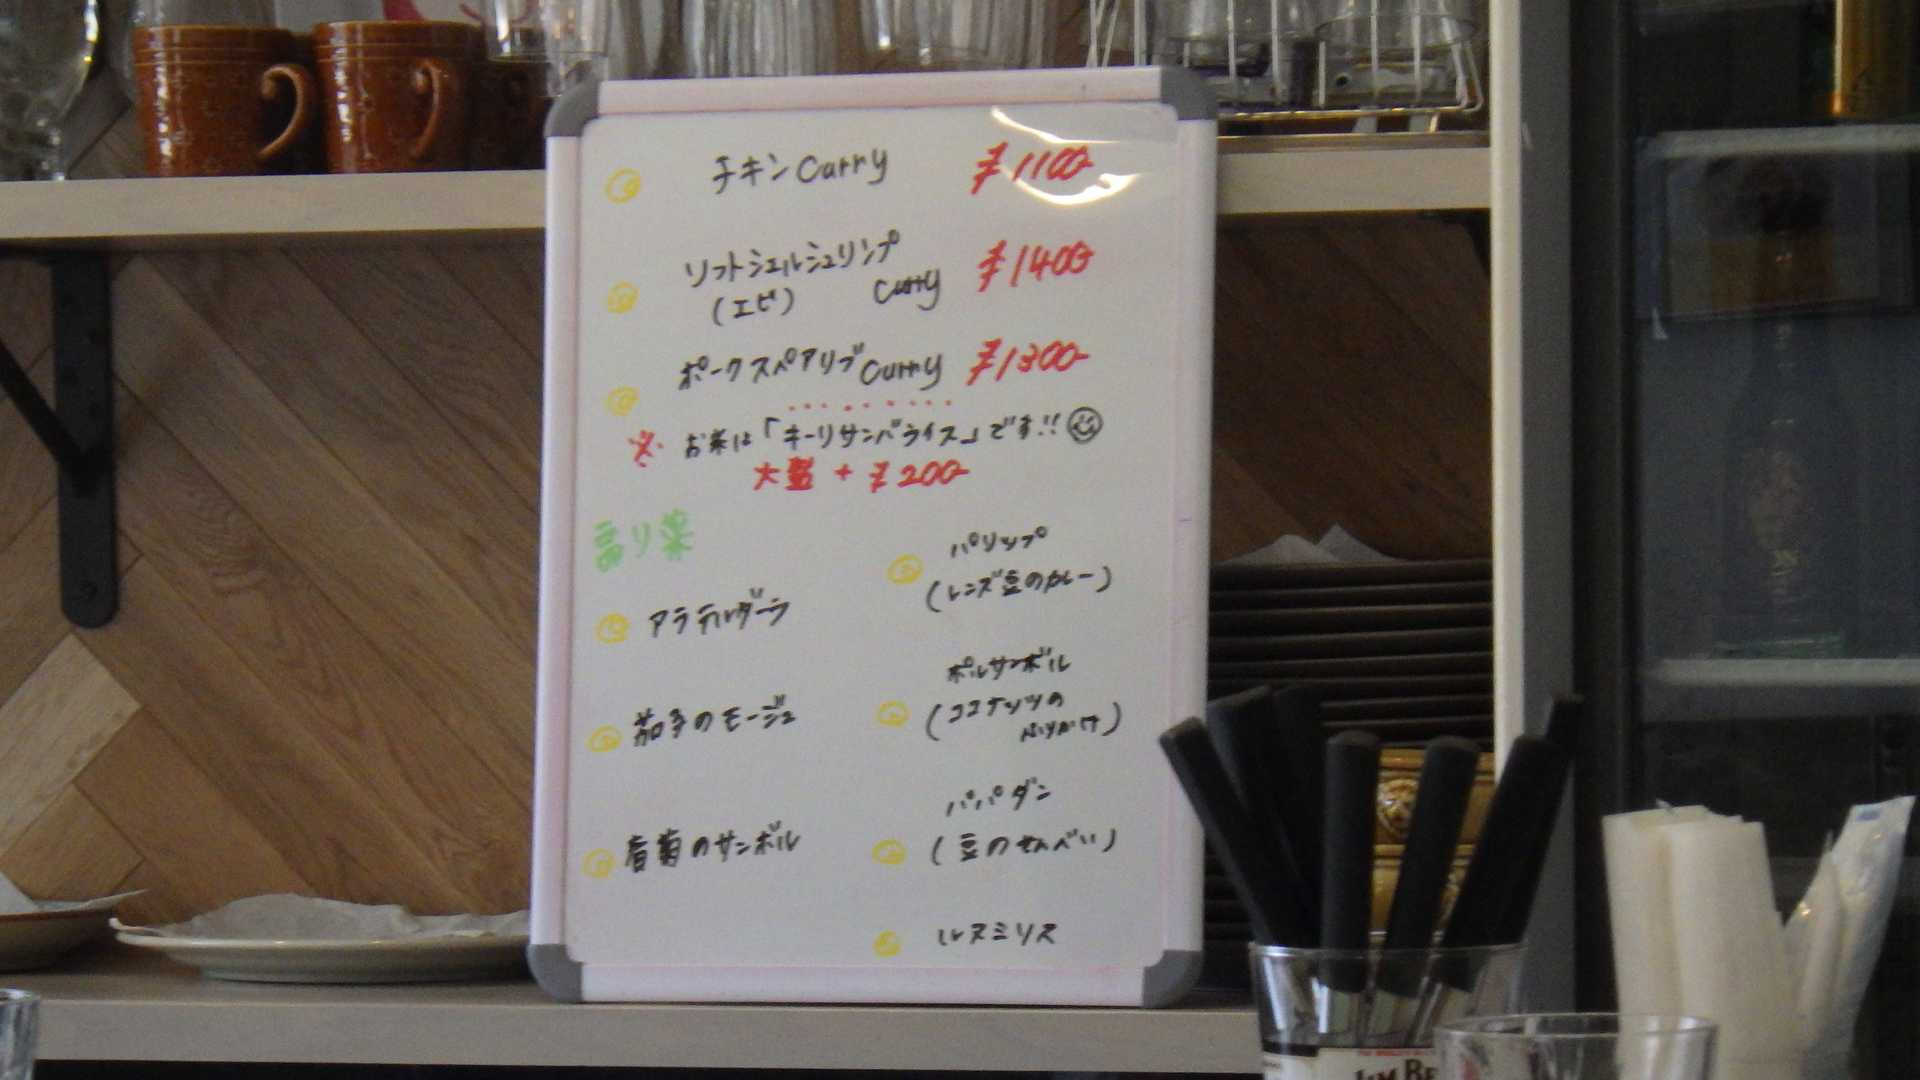 チキンCurry ¥1100-
ソフトシェルシュリンプ
(エビ) Curry ¥1400-
ポークスペアリブCurry ¥1300-
※ お米は「キーリサンバライス」です!!
大盛 + ¥200-
副菜
アラテルダーラ
茄子のモージュ
春菊のサンボル
パリップ
(レンズ豆のカレー)
ポルサンボル
(ココナッツの
ふりかけ)
パパダン
(豆のせんべい)
ルヌミリス
JIM BE